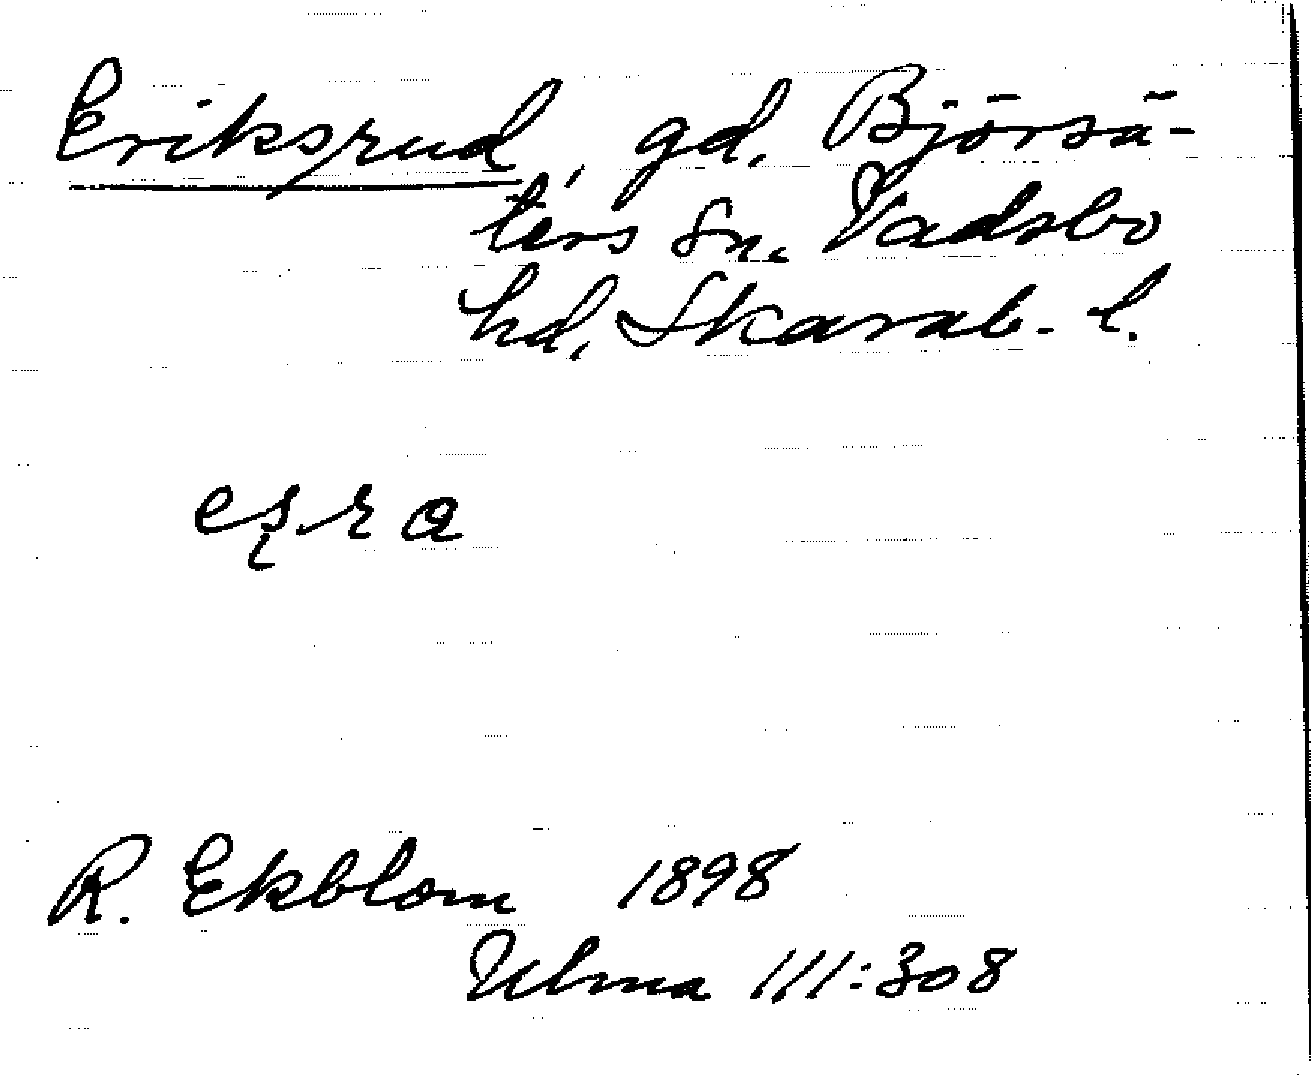 Eriksrud, gd. Björsä-
ters sn. Vadsbo
hd, Skarab. l.
R. Ekblom 1898
Ulma 111:308